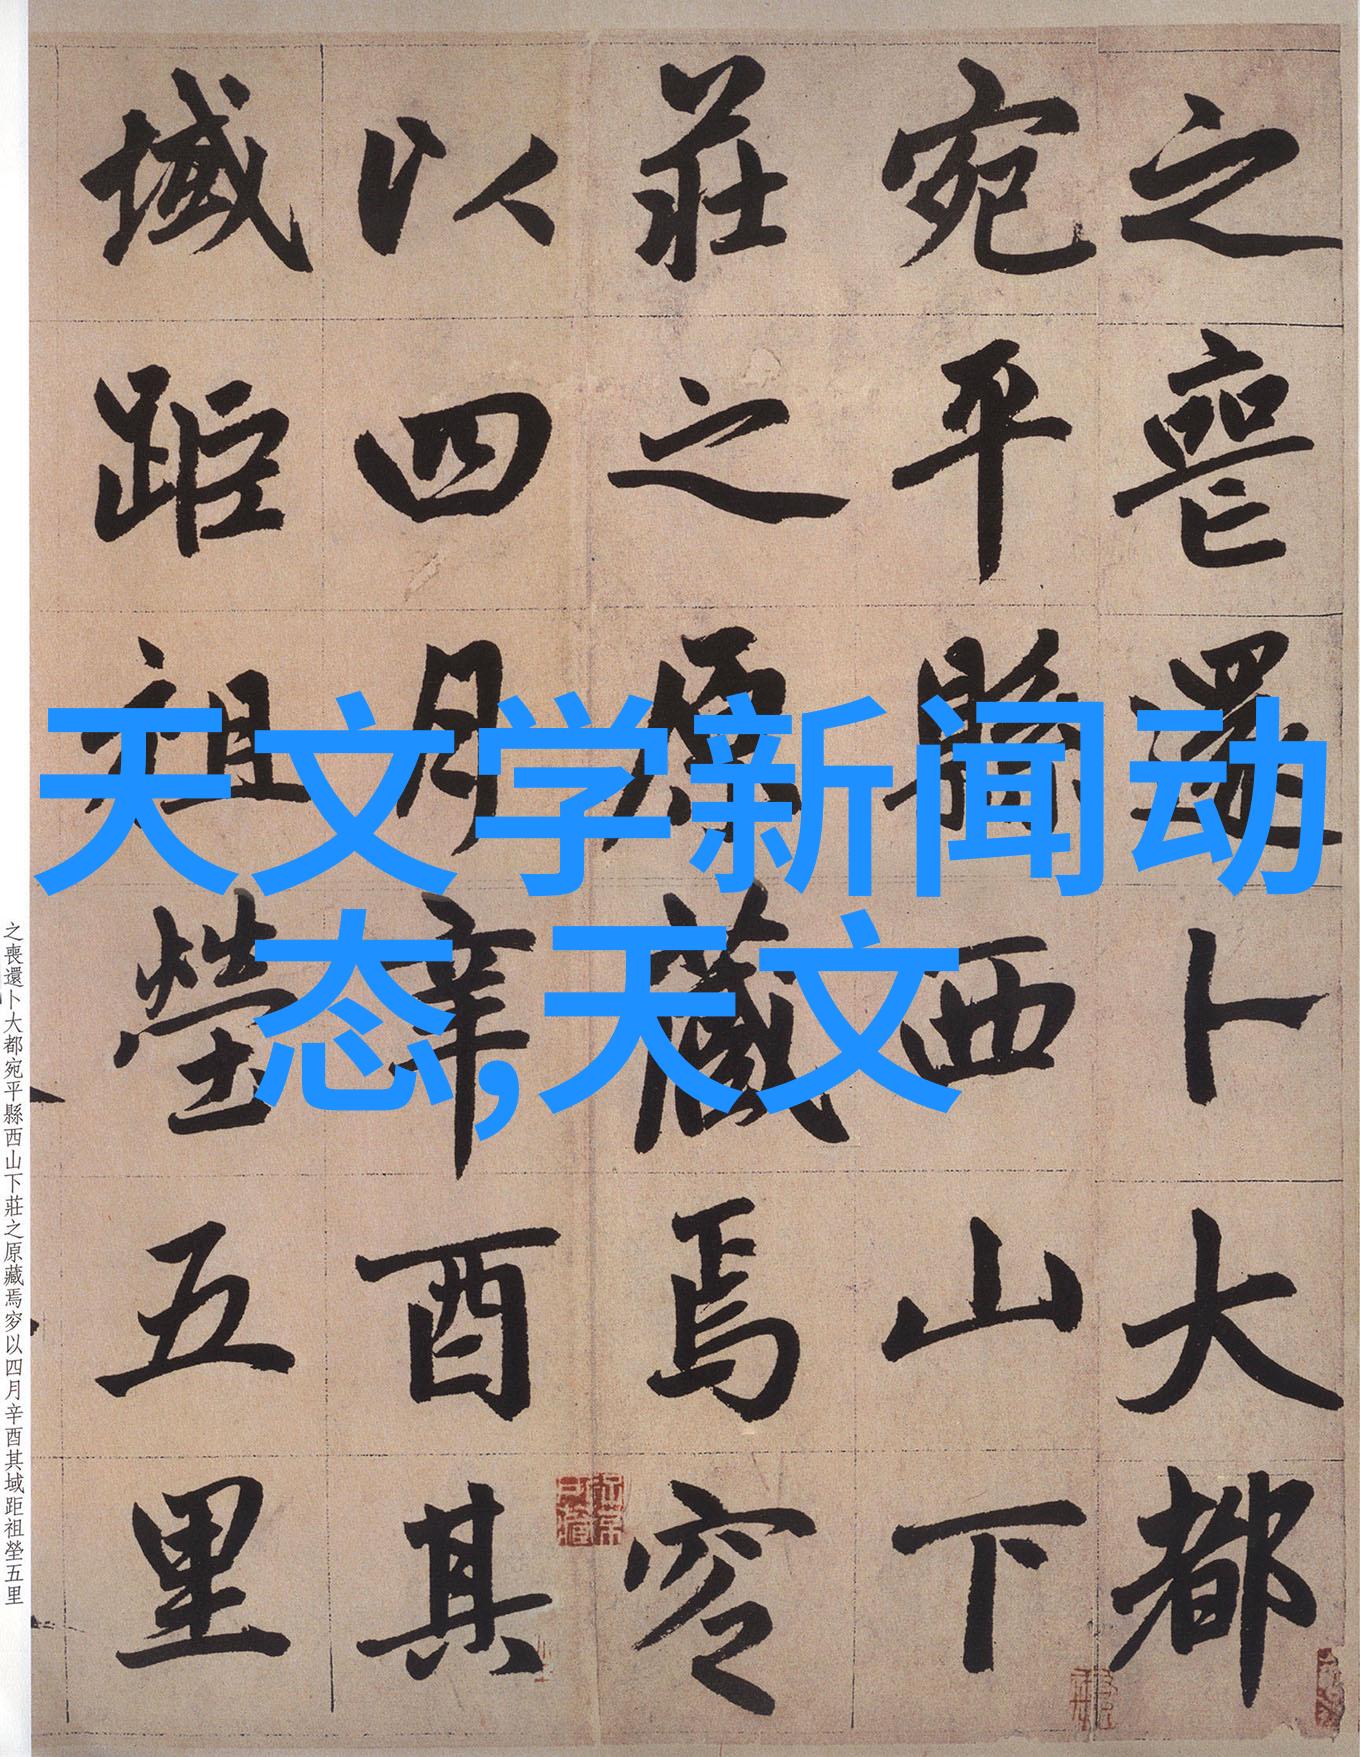 之喪還卜大都
宛平縣西山下
莊之原藏焉窆
以四月辛酉其
域距祖塋五里
天文学新闻动
态,天文
之喪還卜大都宛平縣西山下莊之原藏焉窆以四月辛酉其域距祖塋五里